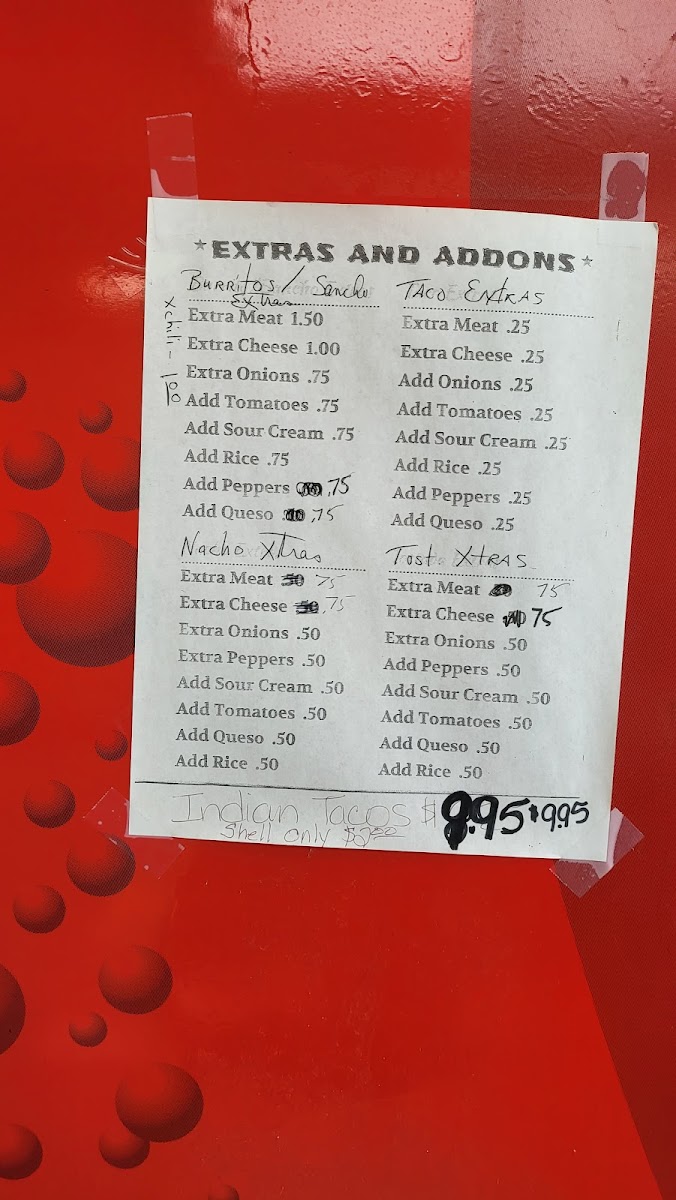 *EXTRAS AND ADDONS*
Burritos / Sancho
Extras
Extra Meat 1.50
Extra Cheese 1.00
Extra Onions .75
Add Tomatoes .75
Add Sour Cream .75
Add Rice .75
Add Peppers .75
Add Queso .75
Taco Extras
Extra Meat .25
Extra Cheese .25
Add Onions .25
Add Tomatoes .25
Add Sour Cream .25
Add Rice .25
Add Peppers .25
Add Queso .25
Nacho Xtras
Extra Meat 75
Extra Cheese .75
Extra Onions .50
Extra Peppers .50
Add Sour Cream .50
Add Tomatoes .50
Add Queso .50
Add Rice .50
Tost Xtras
Extra Meat 75
Extra Cheese 75
Extra Onions .50
Add Peppers .50
Add Sour Cream .50
Add Tomatoes .50
Add Queso .50
Add Rice .50
Indian Tacos $9.95 $9.95
Shell Only